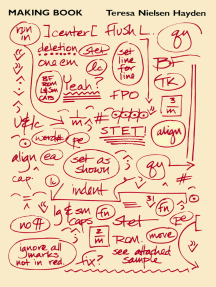 MAKING BOOK Teresa Nielsen Hayden
run in ]center[ flush [ qy
deletion stet set line for line
one em lc BF
BF ROM lg & sm CAPS Yeah? TK
FPO
3 m
U&lc m ^ #
STET! align
word# pe
align ea set as shown qy
cap lc
indent
lg & sm caps fn 3! fn
no# 2 m stet pe
ROM. move
ignore all marks not in red. fix? see attached sample